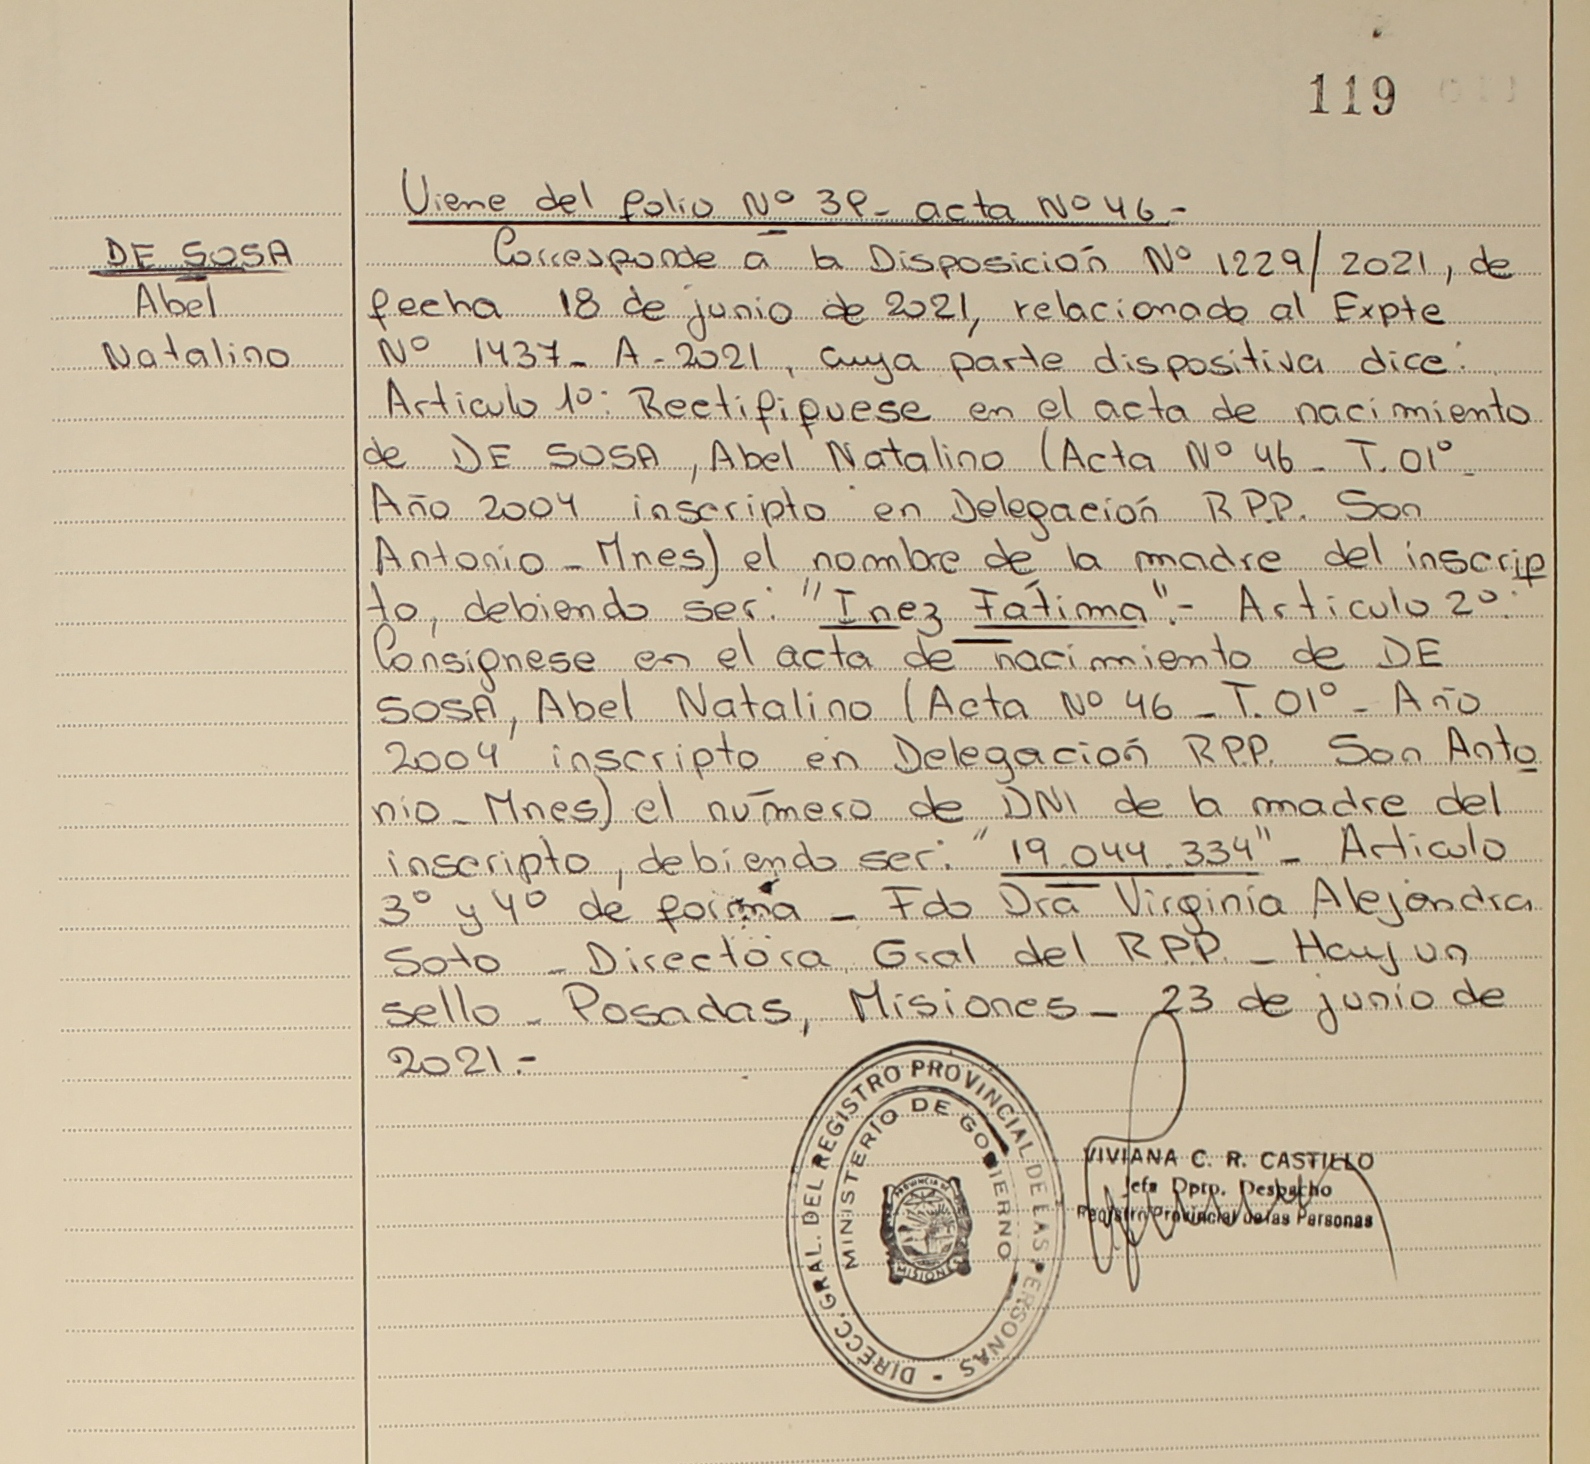 119
Viene del folio Nº 39- acta Nº 46-
DE SOSA
Abel
Natalino
Corresponde a la Disposición Nº 1229/2021, de
fecha 18 de junio de 2021, relacionado al Expte
Nº 1437- A-2021, cuya parte dispositiva dice:
Articulo 1º: Rectifiquese en el acta de nacimiento
de DE SOSA, Abel Natalino (Acta Nº 46 - T. 01º
Año 2004 inscripto en Delegación R.P.P. San
Antonio - Mnes) el nombre de la madre del inscrip
to, debiendo ser: "Inez Fatima".- Articulo 2º:
Consignese en el acta de nacimiento de DE
SOSA, Abel Natalino (Acta Nº 46 - T. 01º - Año
2004 inscripto en Delegación RPP. San Anto
nio - Mnes) el número de DNI de la madre del
inscripto, debiendo ser: "19.044.334"- Articulo
3º y 4º de forma - Fdo Dra Virginia Alejandra
Soto - Directora Gral del R.P.P. - Hay un
sello - Posadas, Misiones - 23 de junio de
2021.-
DIRECC. GRAL. DEL REGISTRO PROVINCIAL DE LAS PERSONAS -
MINISTERIO DE GOBIERNO
PROVINCIA DE
MISIONES
VIVIANA C. R. CASTILLO
Jefa Dpto. Despacho
Registro Provincial de las Personas